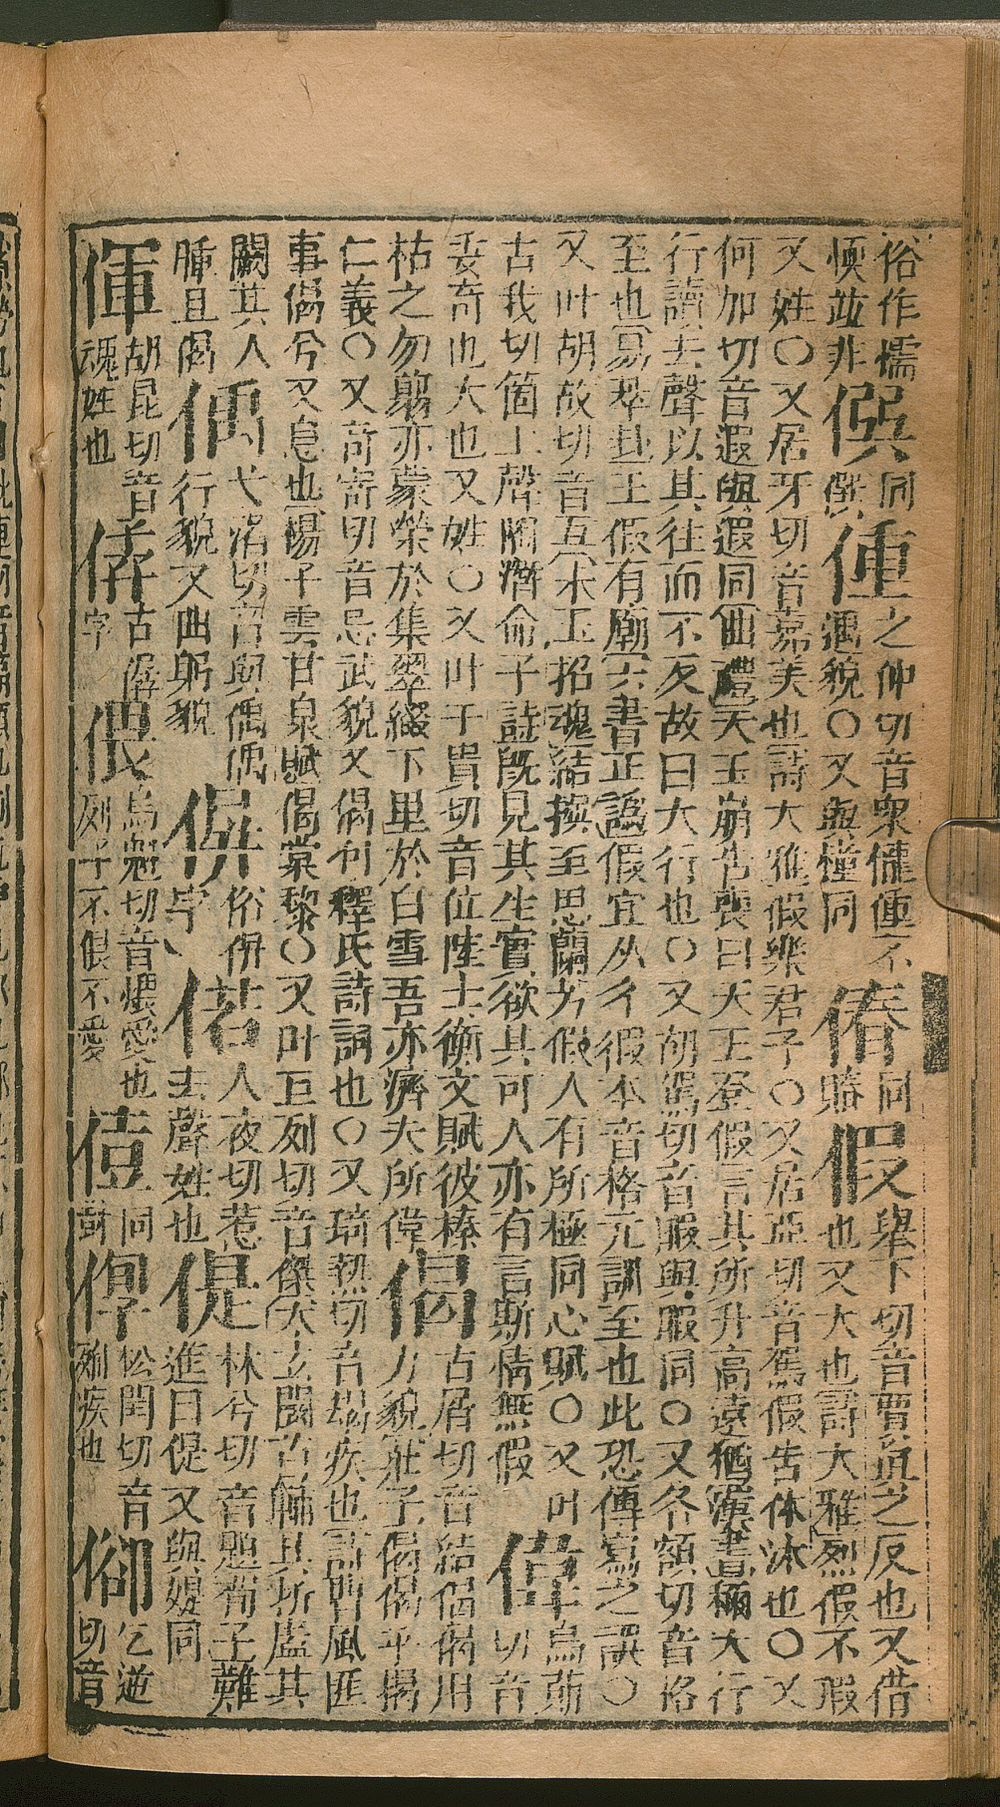 俗作懦
愞並非
㒸同
僎
偅之仲切音衆儱偅不
遇貌〇又與憧同
偆同
賰
假舉下切音賈眞之反也又借
也又大也詩大雅烈假不瑕
又姓〇又居牙切音嘉美也詩大雅假樂君子〇又居亞切音駕假告休沐也〇又
何加切音遐與遐同曲禮天王崩告喪曰天王登假言其所升高遠猶漢書稱大行
行讀去聲以其往而不反故曰大行也〇又胡駕切音暇與暇同〇又各額切音格
至也易萃卦王假有廟六書正譌假宜从彳徦本音格元訓至也此恐傳寫之誤〇
又叶胡故切音互宋玉招魂結撰至思蘭芳假人有所極同心賦〇又叶
古我切箇上聲陶潛命子詩旣見其生實欲其可人亦有言斯情無假
偉烏
切音
委奇也大也又姓〇又叶于貴切音位陸士衡文賦彼榛
枯之勿翦亦蒙榮於集翠綴下里於白雪吾亦濟夫所偉
偈古屑切音結偈偈用
力貌莊子偈偈乎揭
仁義〇又奇寄切音忌武貌又偈句釋氏詩詞也〇又琦熱切音朅疾也詩匪風匪
事偈兮又息也揚子雲甘泉賦偈棠黎〇又叶巨列切音傑太玄閑舌觿其折盧其
闕其人
腫且偈
偊弋渚切音與偊偊
行貌又曲躬貌
俗倂
字
偌人夜切惹
去聲姓也
偍林兮切音題荀子難
進曰偍又與媞同
㑮胡昆切音
魂姓也
侟古
字
偎烏魁切音煨愛也
列子不偎不愛
偣同
㑺松閏切音
殉疾也
㕁乞逆
切音